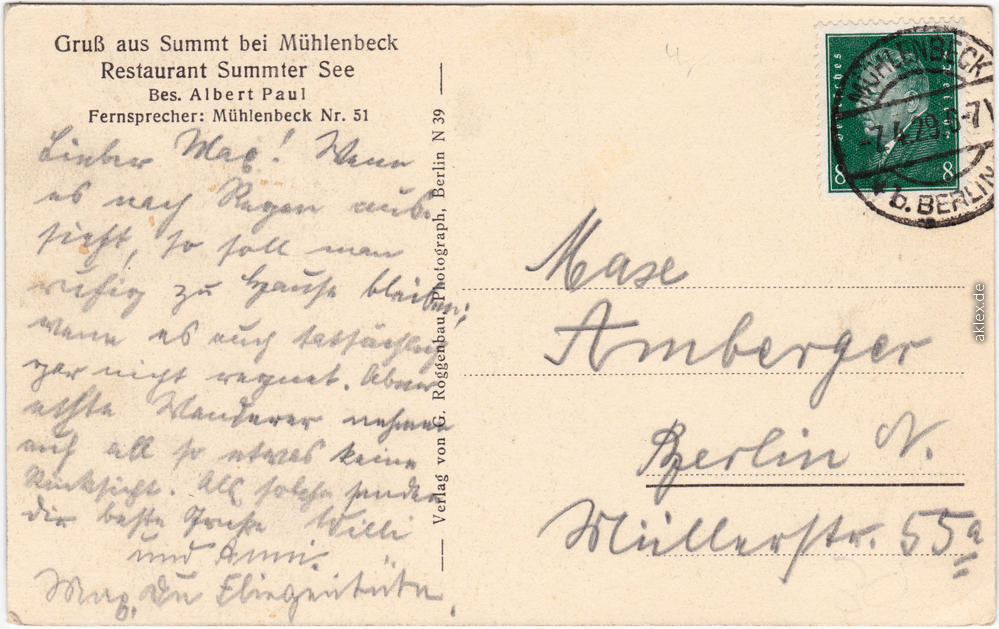 Gruß aus Summt bei Mühlenbeck
Restaurant Summter See
Bes. Albert Paul
Fernsprecher: Mühlenbeck Nr. 51
Lieber Max! Wenn
es nach Regen aus-
sieht, so soll man
ruhig zu Hause bleiben;
wenn es auch tatsächlich
gar nicht regnet. Aber
echte Wanderer nehmen
auf all so etwas keine
Rücksicht. Als solche senden
dir beste Grüße Willi
und Anni.
Max, Du Fliegentüte.
Verlag von G. Roggenbau, Photograph, Berlin N 39
Deutsches Reich
8 8
MÜHLENBECK
-7.4.29. 6-7V
* b. BERLIN
Maxe
Amberger
Berlin N.
Müllerstr. 55a
aklex.de